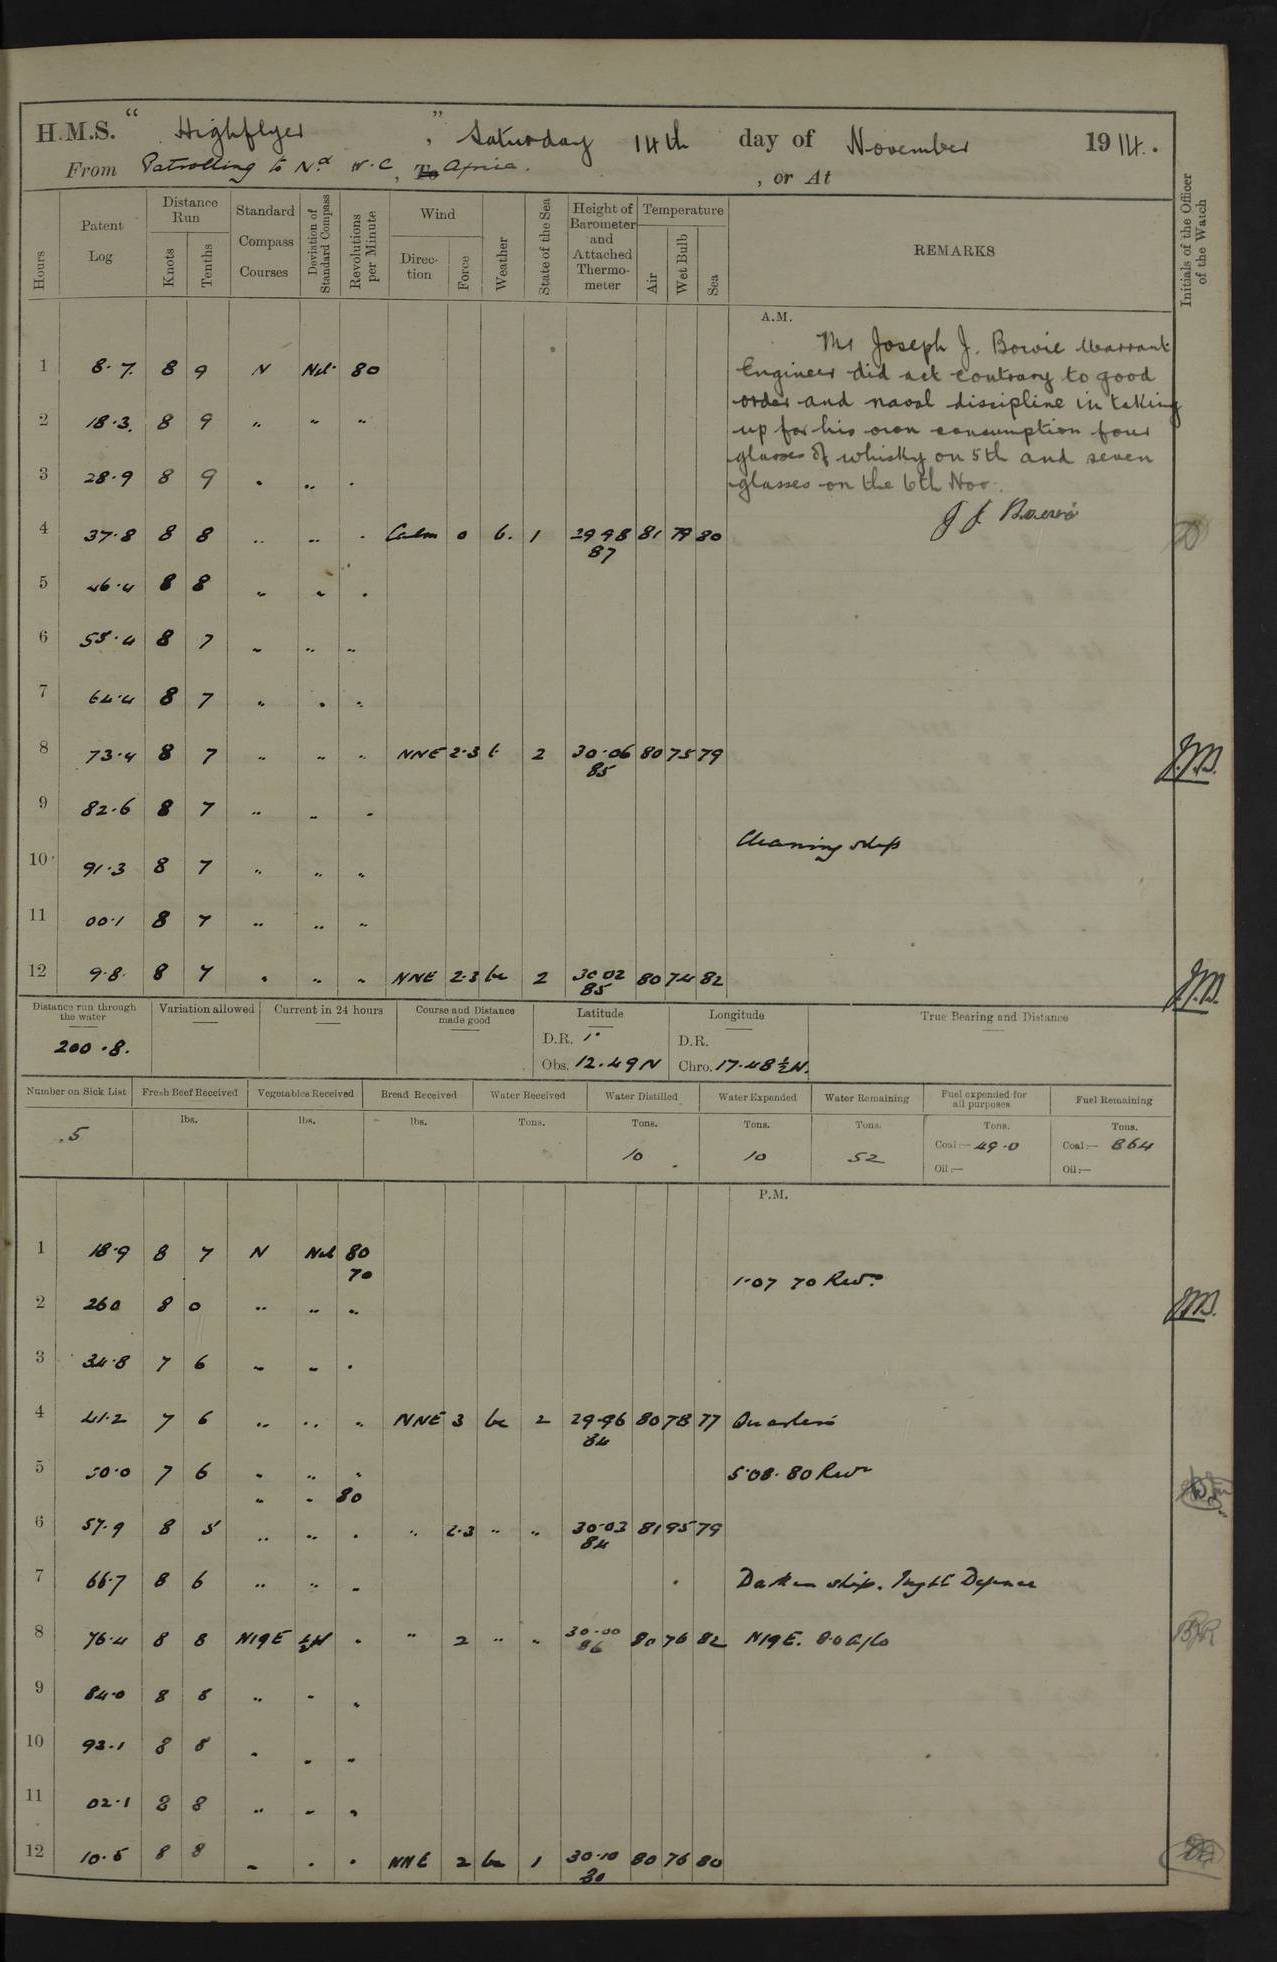 H.M.S. " Highflyer ", Saturday 14th day of November 1914.
From Patrolling to Nd W.C, To Africa. , or At
Hours
Patent Log
Distance Run
Knots
Tenths
Standard Compass Courses
Deviation of Standard Compass
Revolutions per Minute
Wind
Direction
Force
Weather
State of the Sea
Height of Barometer and Attached Thermometer
Temperature
Air
Wet Bulb
Sea
REMARKS
Initials of the Officer of the Watch
A.M.
Mr Joseph J. Bowie Warrant
Engineer did act contrary to good
order and naval discipline in taking
up for his own consumption four
glasses of whisky on 5th and seven
glasses on the 6th Nov.
J J Bowie
1 8.7. 8 9 N Nil 80
2 18.3. 8 9 " " "
3 28.9 8 9 " " "
4 37.8 8 8 " " " Calm 0 b. 1 29 98 81 79 80
87
5 46.4 8 8 " " "
6 55.4 8 7 " " "
7 64.4 8 7 " " "
8 73.4 8 7 " " " NNE 2.3 b 2 30.06 80 75 79 J.M.B.
85
9 82.6 8 7 " " "
Cleaning ship
10 91.3 8 7 " " "
11 00.1 8 7 " " "
12 9.8. 8 7 " " " NNE 2.3 bc 2 30 02 80 74 82 J.M.B.
85
Distance run through the water
Variation allowed
Current in 24 hours
Course and Distance made good
Latitude
Longitude
True Bearing and Distance
200.8.
D.R. D.R.
Obs. 12.49 N Chro. 17.48½W.
Number on Sick List
Fresh Beef Received
Vegetables Received
Bread Received
Water Received
Water Distilled
Water Expended
Water Remaining
Fuel expended for all purposes
Fuel Remaining
lbs. lbs. lbs. Tons. Tons. Tons. Tons. Tons. Tons.
5 10 10 52 Coal:— 49.0 Coal:— 864
Oil:— Oil:—
P.M.
1 18.9 8 7 N Nil 80
70
1.07 70 Revs
2 26 0 8 0 " " "
3 34.8 7 6 " " "
4 41.2 7 6 " " " NNE 3 bc 2 29.96 80 78 77 Quarters
84
5 50.0 7 6 " " " 5.08. 80 Revs
" " 80
6 57.9 8 5 " " " " 2.3 " " 30.03 81 95 79
84
7 66.7 8 6 " " " Darken ship. Night Defence
8 76.4 8 8 N19E ½W " " 2 " " 30.00 80 76 82 N19E. 8.0 a/co
86
9 84.0 8 8 " " "
10 93.1 8 8 " " "
11 02.1 8 8 " " "
12 10.5 8 8 " " " NNE 2 bc 1 30.10 80 76 80
80